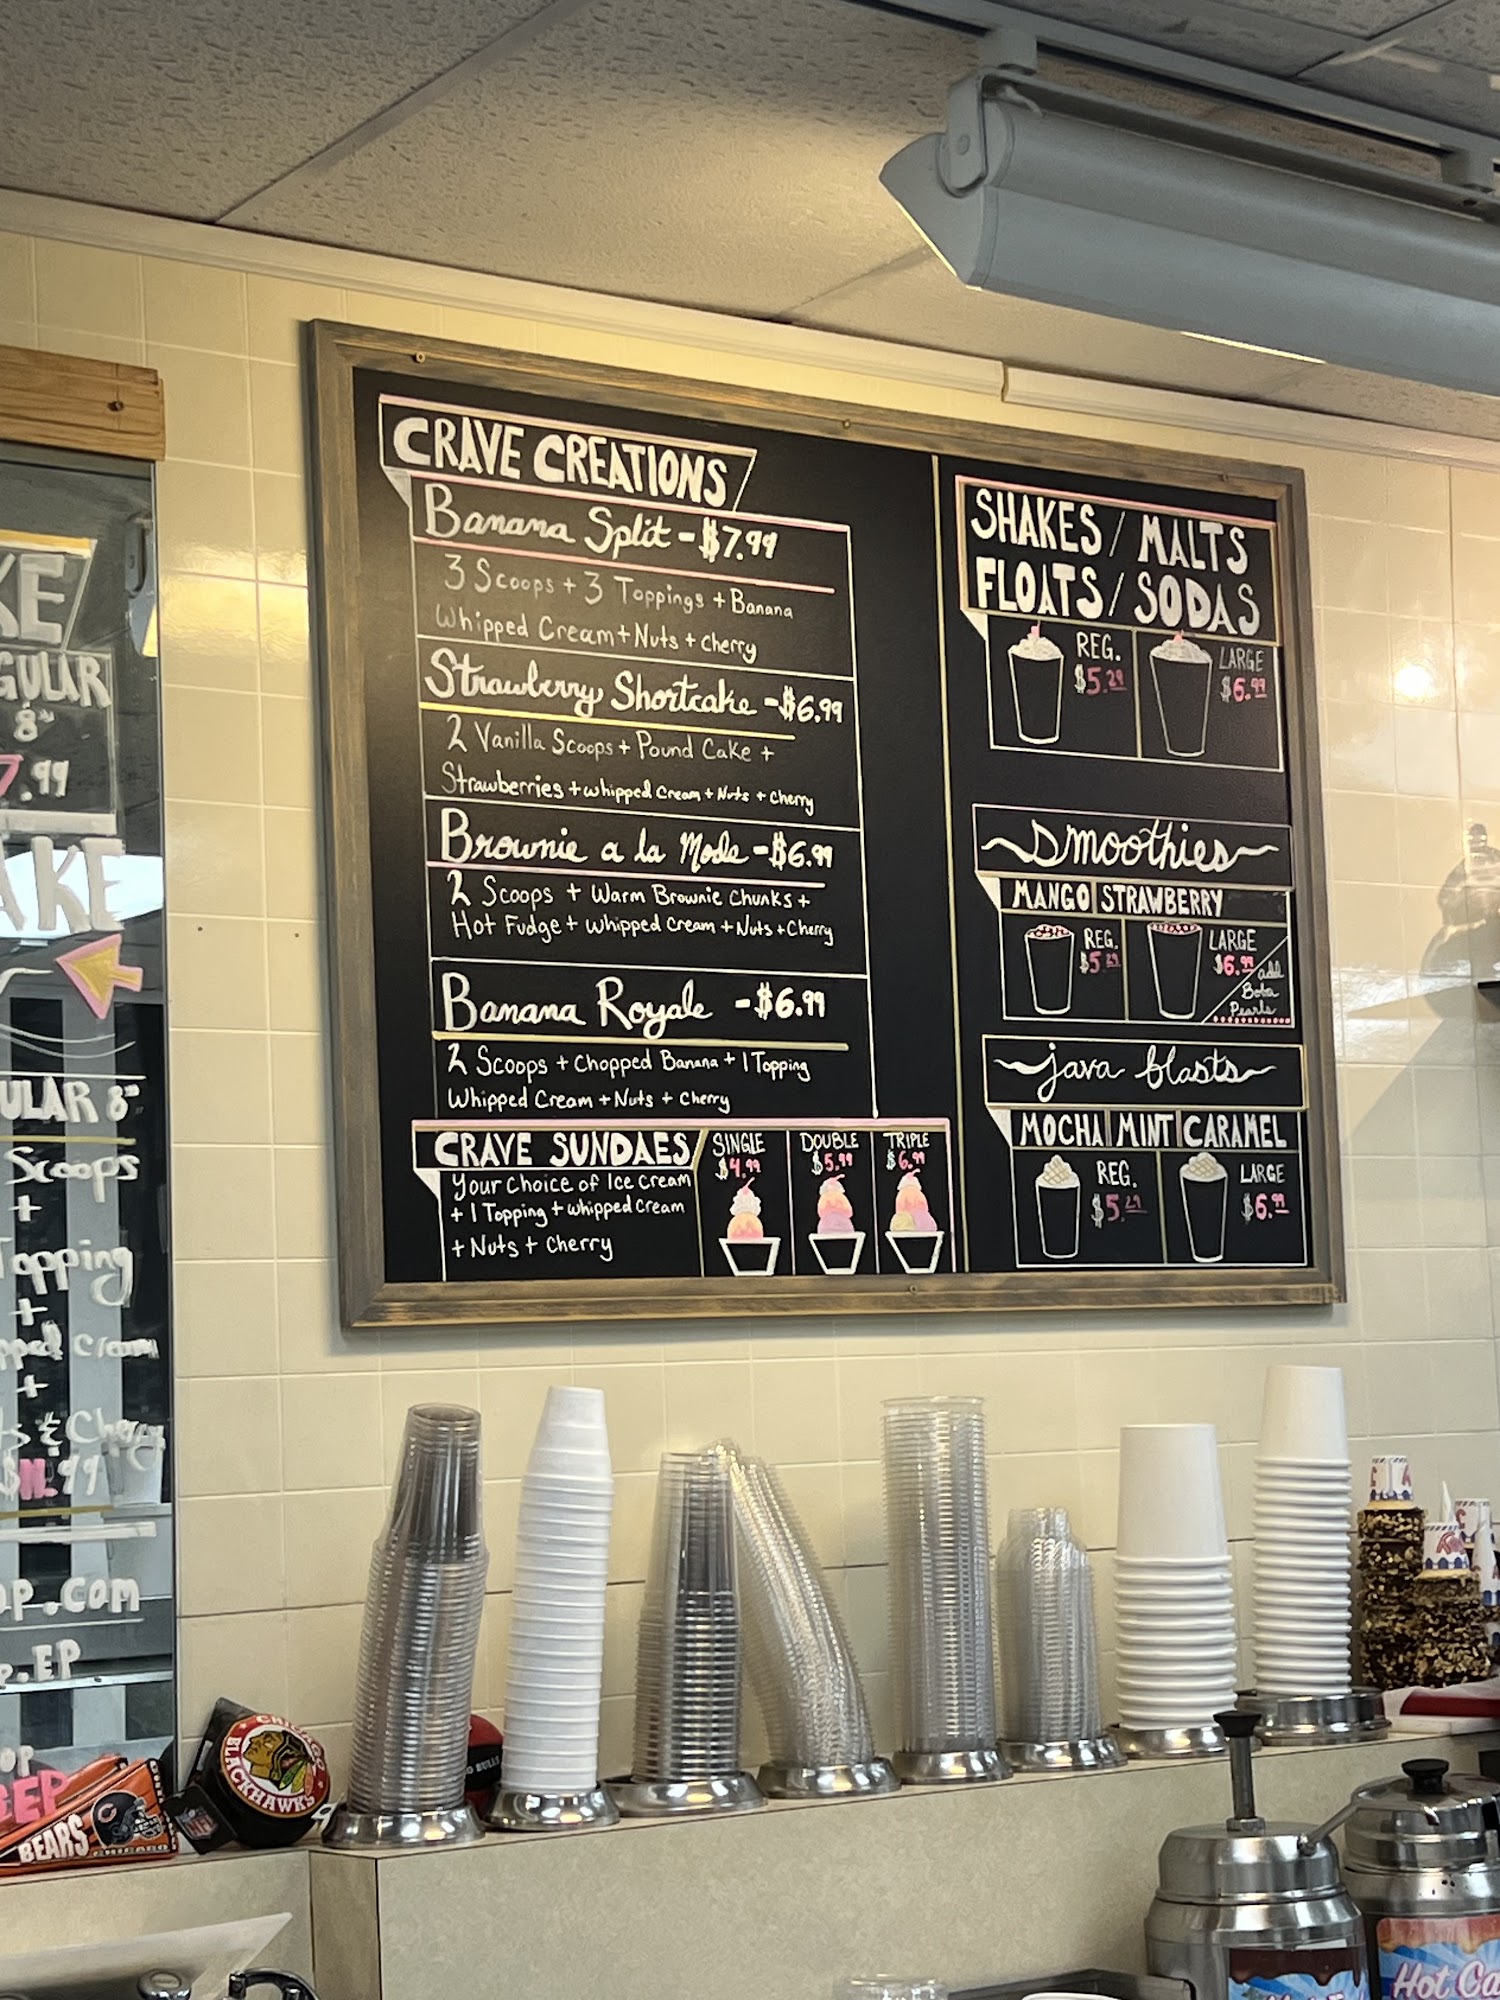 KE
GULAR
8"
7.99
AKE
ULAR 8"
Scoops
+
Topping
+
pped Cream
+
ts & Cherry
.99
op.com
p.EP
OP
BEP
BEARS
CHICAGO
NFL
CHICAGO
BLACKHAWKS
BULLS
CRAVE CREATIONS
Banana Split - $7.99
3 Scoops + 3 Toppings + Banana
Whipped Cream + Nuts + Cherry
Strawberry Shortcake - $6.99
2 Vanilla Scoops + Pound Cake +
Strawberries + Whipped Cream + Nuts + Cherry
Brownie a la Mode - $6.99
2 Scoops + Warm Brownie Chunks +
Hot Fudge + Whipped Cream + Nuts + Cherry
Banana Royale - $6.99
2 Scoops + Chopped Banana + 1 Topping
Whipped Cream + Nuts + Cherry
CRAVE SUNDAES
Your Choice of Ice Cream
+ 1 Topping + Whipped Cream
+ Nuts + Cherry
SINGLE
$4.99
DOUBLE
$5.99
TRIPLE
$6.99
SHAKES / MALTS
FLOATS / SODAS
REG.
$5.29
LARGE
$6.99
Smoothies
MANGO STRAWBERRY
REG.
$5.29
LARGE
$6.99
add
Boba
Pearls
java blasts
MOCHA MINT CARAMEL
REG.
$5.29
LARGE
$6.99
Hot Ca